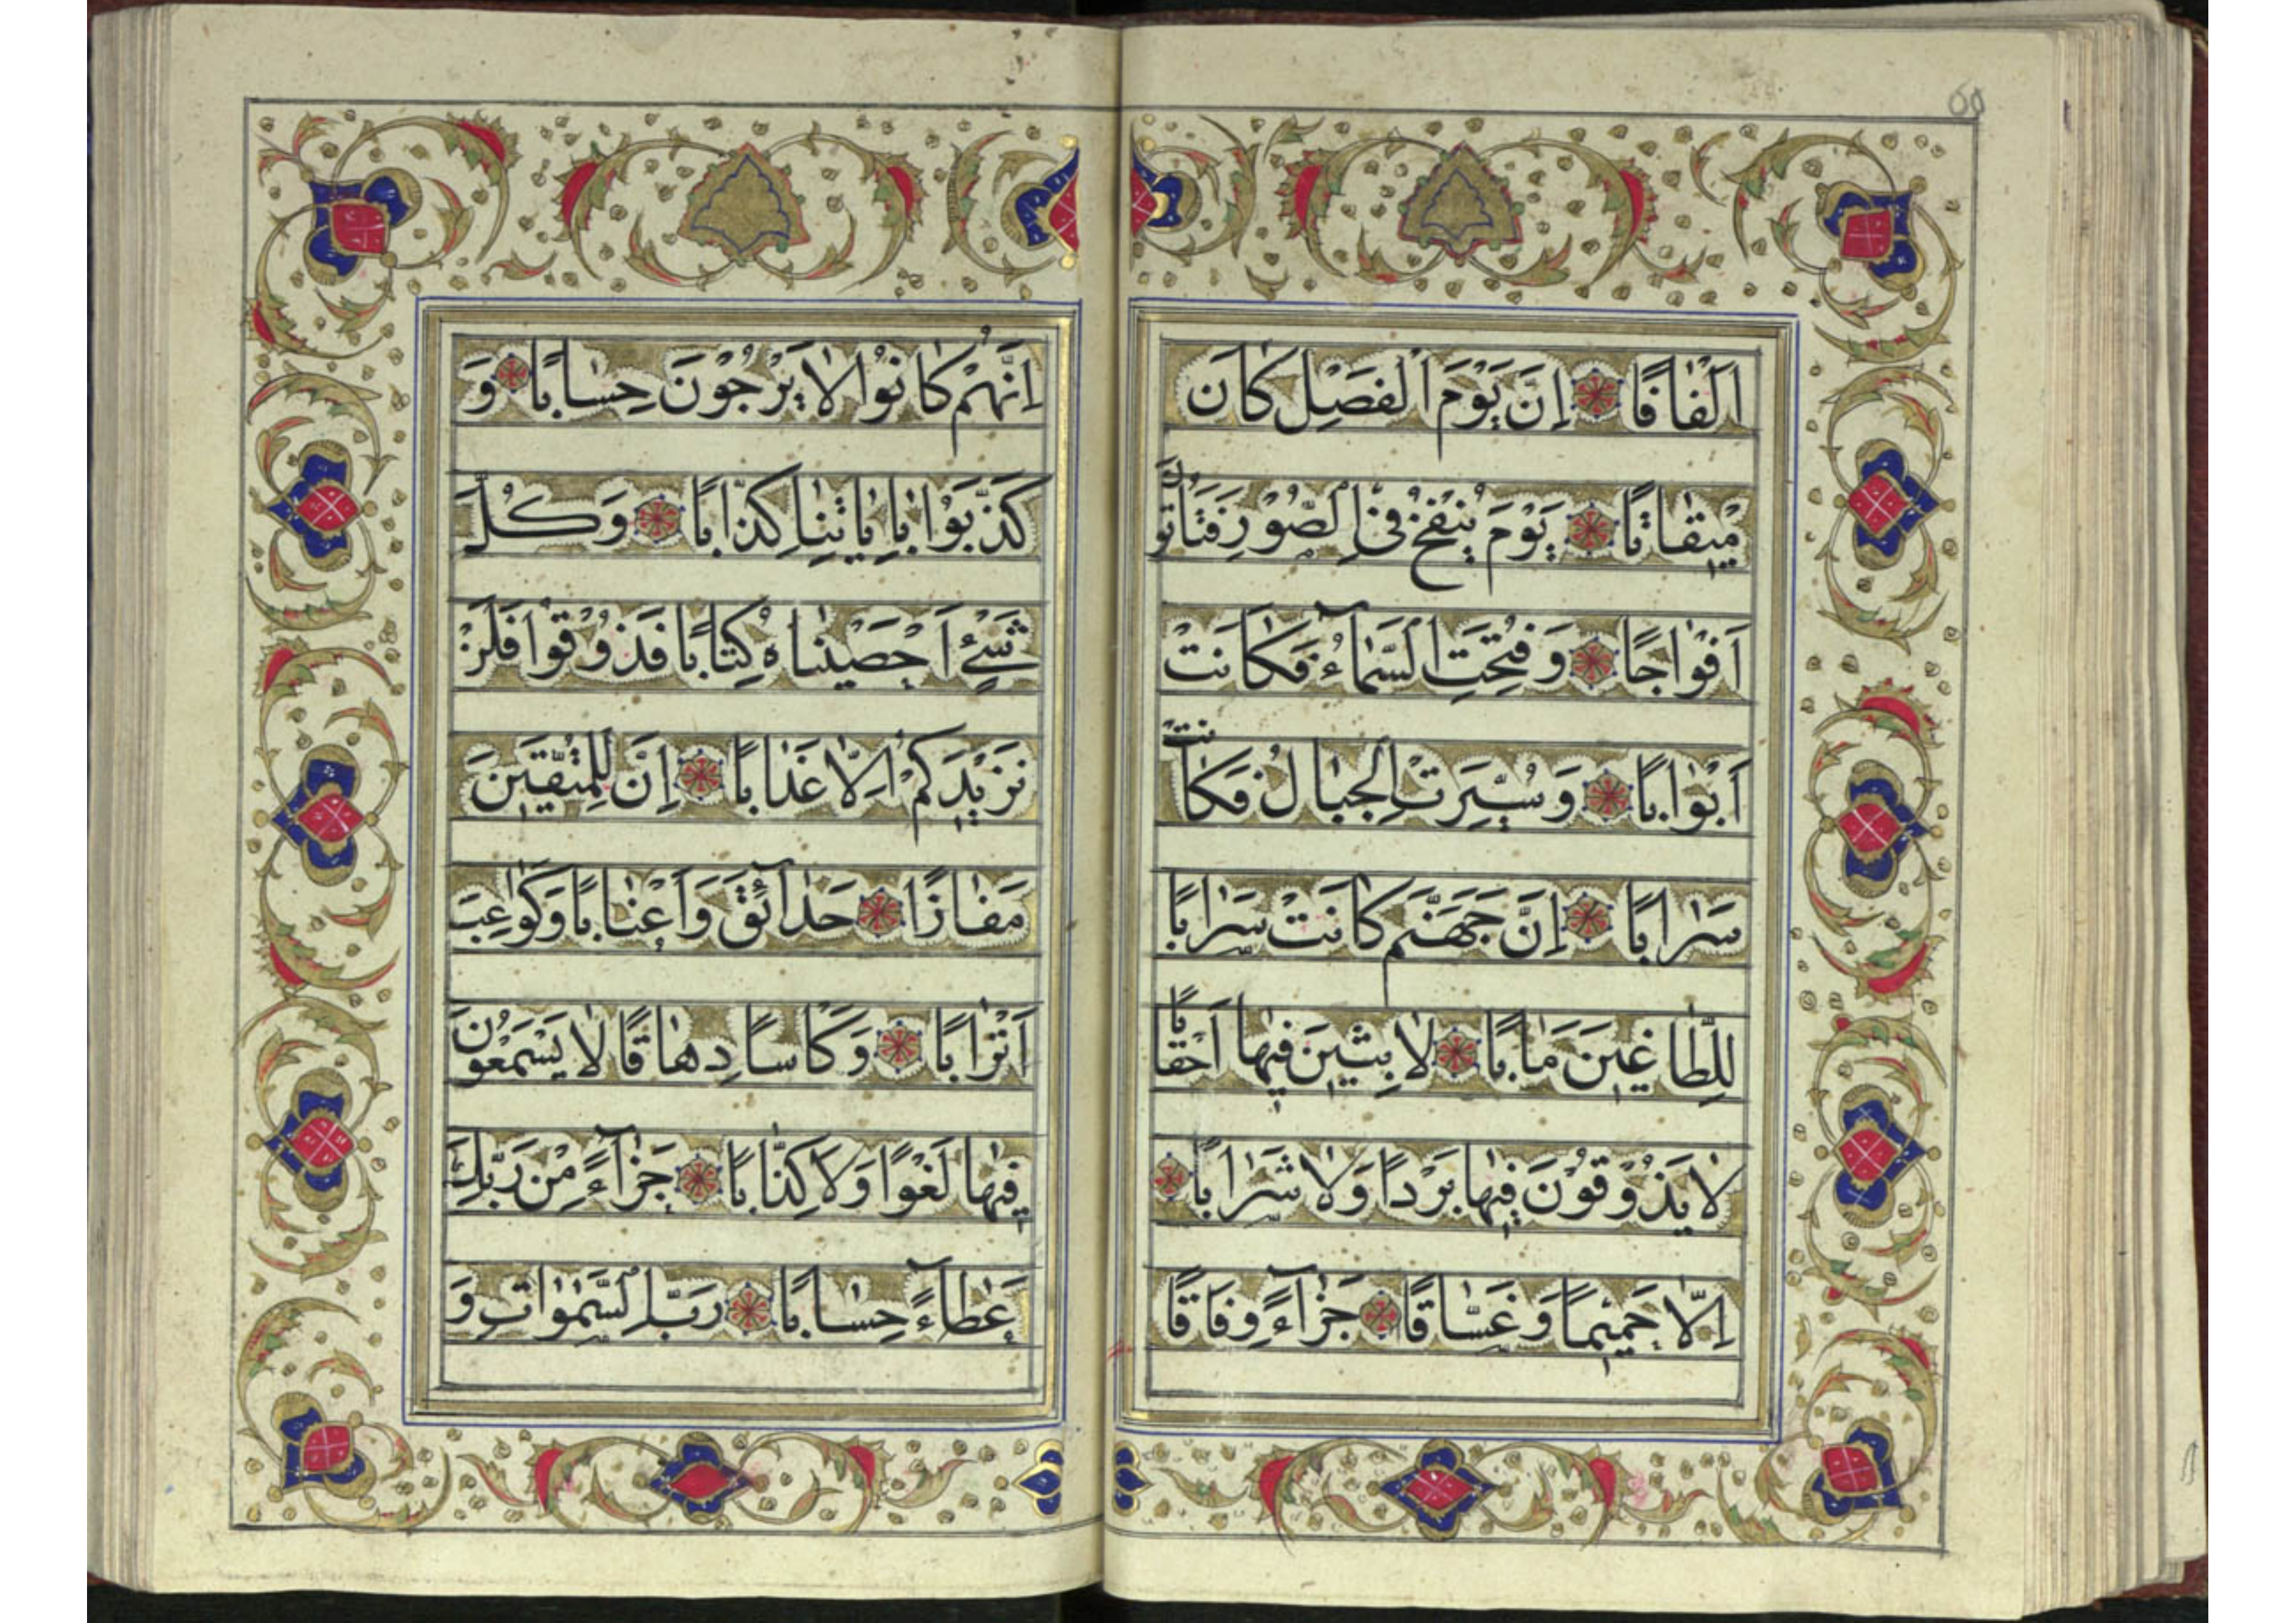 60
اَلْفٰافًا اِنَّ يَوْمَ الْفَصْلِ كٰانَ
مِيْقٰاتًا يَوْمَ يُنْفَخُ فِى الصُّوْرِ فَتَاْتُوْنَ
اَفْوٰاجًا وَفُتِحَتِ السَّمٰآءُ فَكٰانَتْ
اَبْوٰابًا وَسُيِّرَتْ الْجِبٰالُ فَكٰانَتْ
سَرٰابًا اِنَّ جَهَنَّمَ كٰانَتْ سَرٰابًا
لِلطّٰاغِيْنَ مَاٰبًا لاٰبِثِيْنَ فِيْهٰا اَحْقٰابًا
لاٰيَذُوْقُوْنَ فِيْهٰا بَرْدًا وَلاٰ شَرٰابًا
اِلّٰا حَمِيْمًا وَغَسّٰاقًا جَزٰآءً وِفٰاقًا
اِنَّهُمْ كٰانُوْا لاٰيَرْجُوْنَ حِسٰابًا وَ
كَذَّبُوْا بِاٰيٰاتِنٰا كِذّٰابًا وَكُلَّ
شَيْءٍ اَحْصَيْنٰاهُ كِتٰابًا فَذُوْقُوْا فَلَنْ
نَزِيْدَكُمْ اِلّٰا عَذٰابًا اِنَّ لِلْمُتَّقِيْنَ
مَفٰازًا حَدٰآئِقَ وَاَعْنٰابًا وَكَوٰاعِبَ
اَتْرٰابًا وَكَاْسًا دِهٰاقًا لاٰ يَسْمَعُوْنَ
فِيْهٰا لَغْوًا وَلاٰ كِذّٰابًا جَزٰآءً مِنْ رَبِّكَ
عَطٰآءً حِسٰابًا رَبِّ السَّمٰوٰاتِ وَ